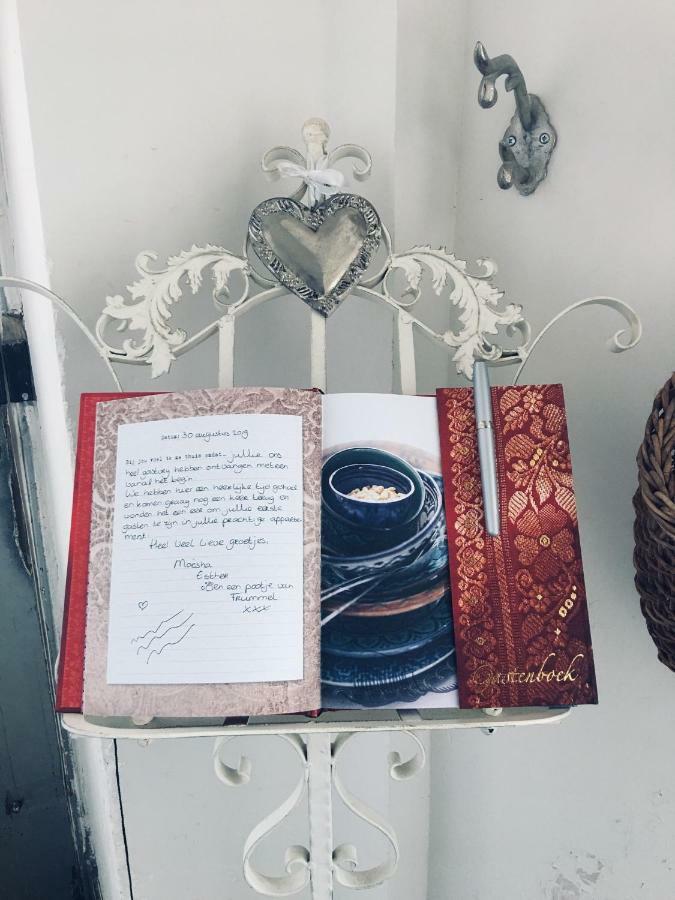 Datum: 30 augustus 2019
Bij jou voel ik me thuis omdat... jullie ons
heel gastvrij hebben ontvangen meteen
vanaf het begin.
We hebben hier een heerlijke tijd gehad
en komen graag nog een keer terug en
vonden het een eer om jullie eerste
gasten te zijn in jullie prachtige apparte-
ment.
Heel veel lieve groetjes,
Moesha
Esther
en een pootje van
Frummel
xxx
Gastenboek